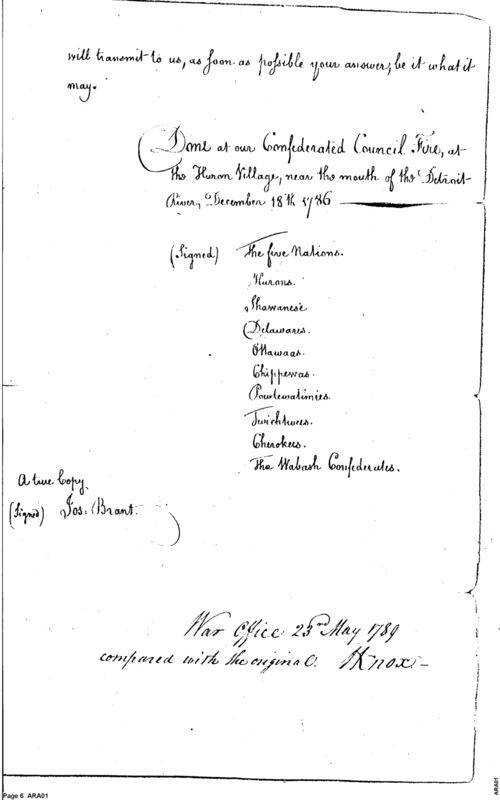 will transmit to us, as soon as possible your answer, be it what it
may.
Done at our Confederated Council Fire, at
the Huron Village, near the mouth of the Detroit
River, December 18th 1786
(Signed) The five Nations.
Hurons.
Shawanese
Delawares.
Ottawaas.
Chippewas.
Powtewatimies
Twichtwees.
Cherokees.
The Wabash Confederates.
A true Copy.
(Signed) Jos: Brant.
War Office 23rd May 1789
compared with the original. HKnox
Page 6 ARA01
ARA01